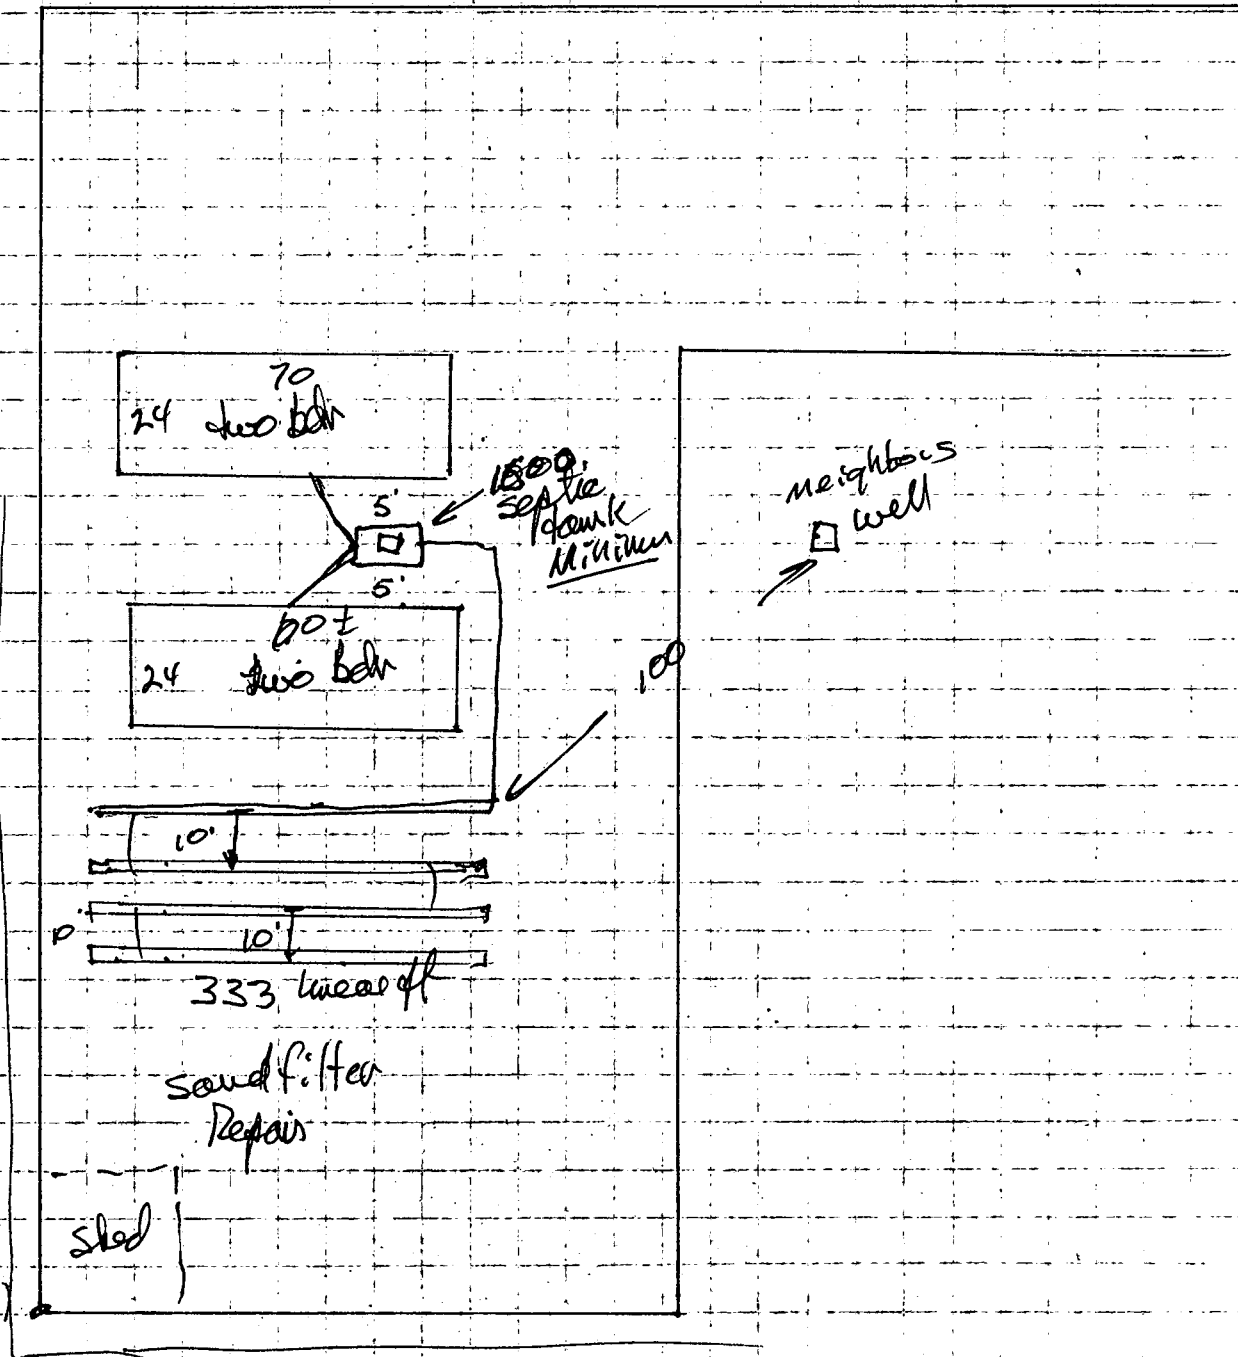 70
24 two bdr
5'
septic
tank
Minimum
neighbors
well
5'
60±
24 two Bdr
100
10'
10'
333 linear ft
sand filter
Repair
shed